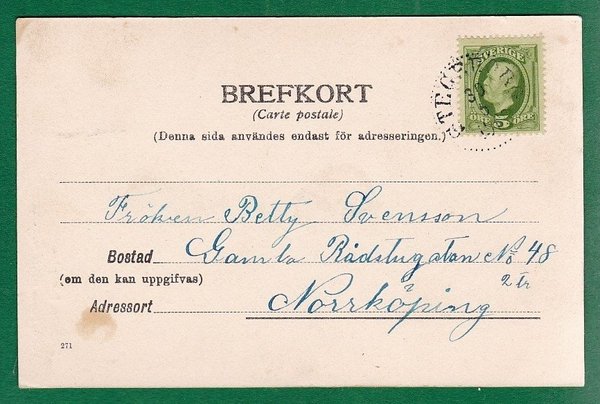 BREFKORT
(Carte postale)
(Denna sida användes endast för adresseringen.)
SVERIGE
5
ÖRE ÖRE
Fröken Betty Svensson
Bostad Gamla Rådstugatan No 48
(om den kan uppgifvas) 2 tr
Adressort Norrköping
271